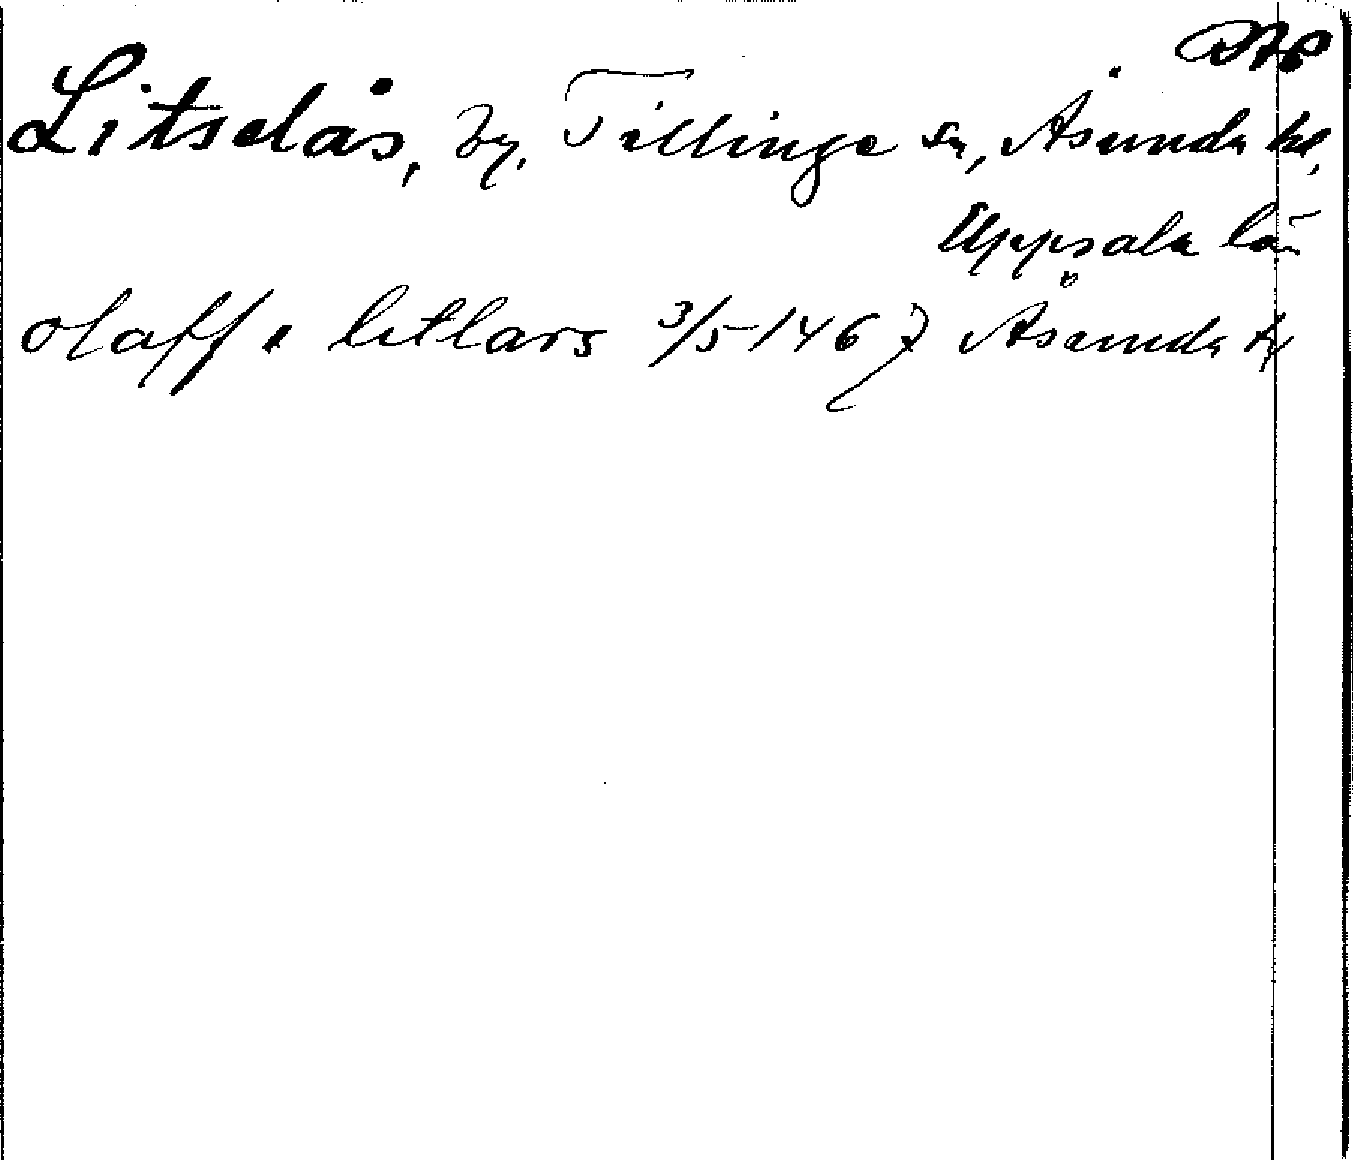 DAP
Litselås, by, Tillinge sn, Åsunda hd,
Uppsala län
olaff i litlars 3/5 1467 Åsunda hd